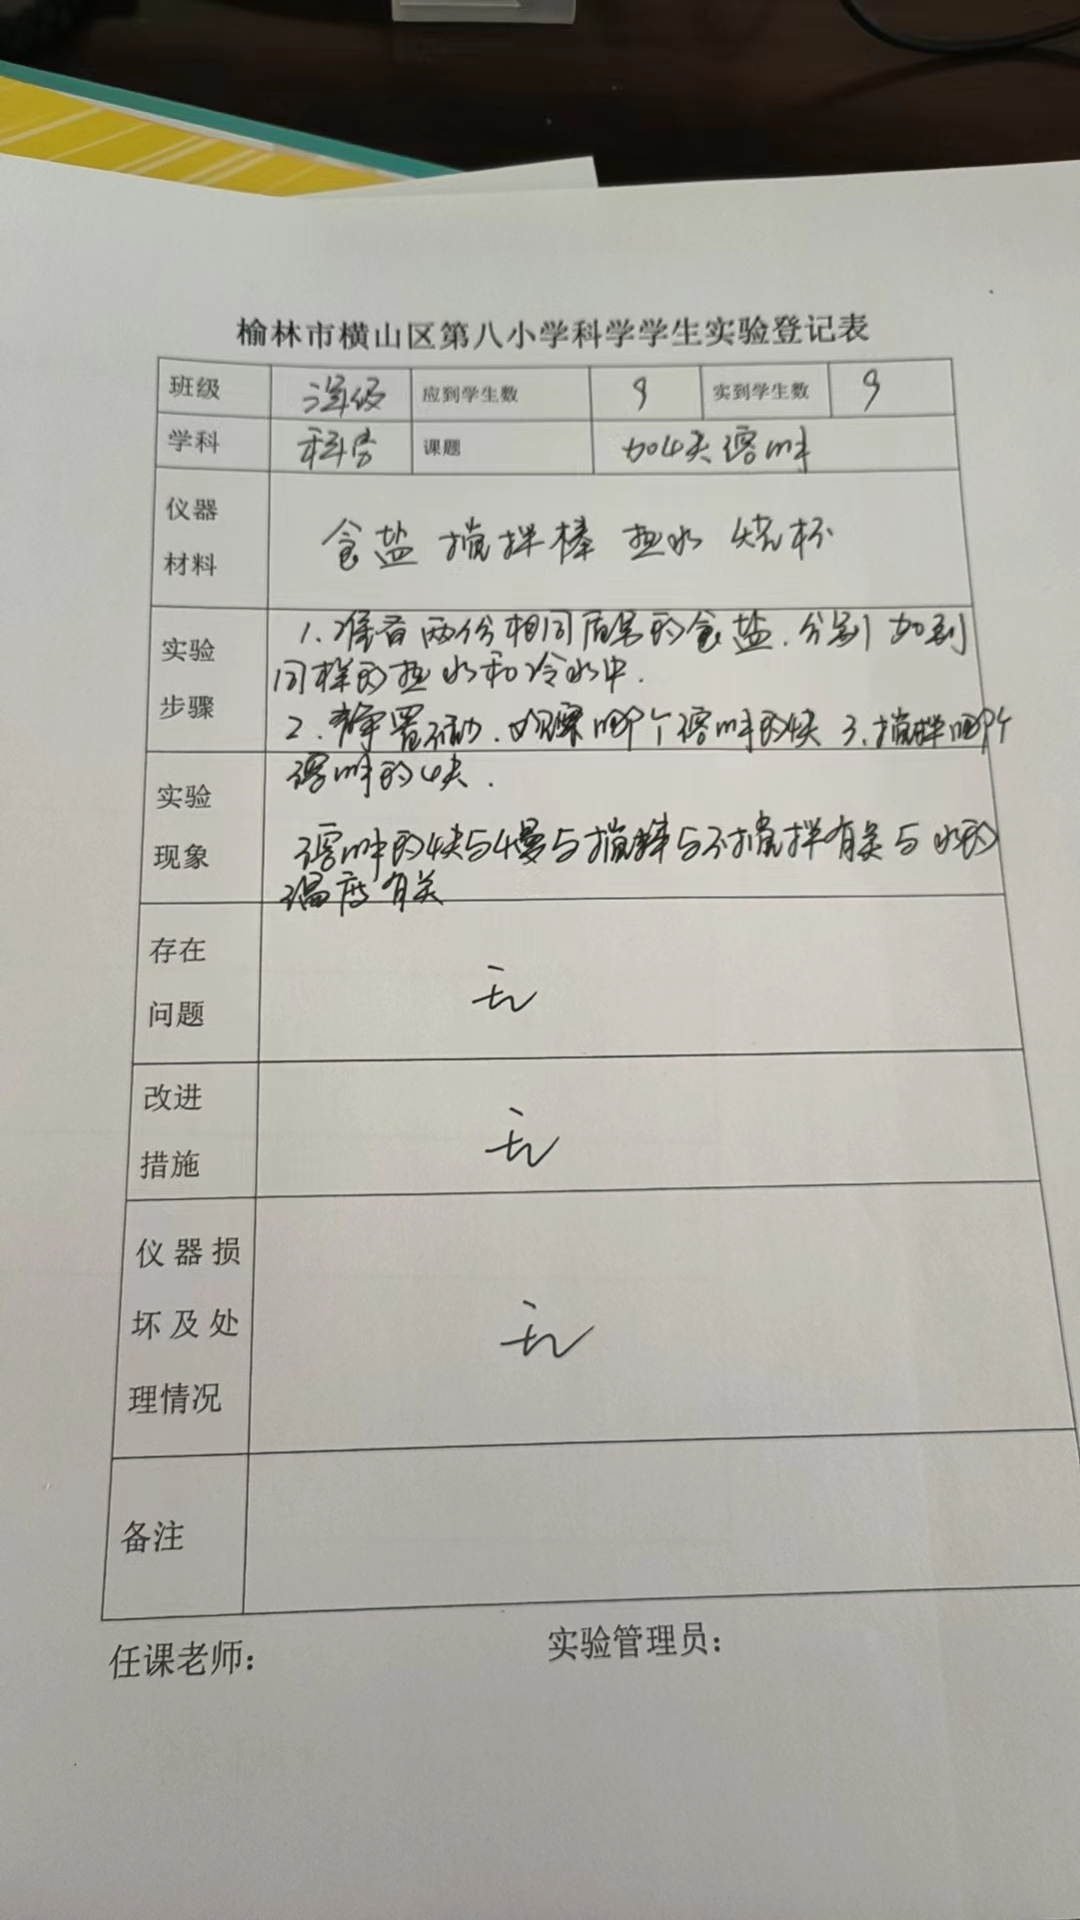 榆林市横山区第八小学科学学生实验登记表
班级 年级 应到学生数 9 实到学生数 9
学科 科学 课题 加快溶解
仪器
材料
食盐 搅拌棒 热水 烧杯
实验
步骤
1.准备两份相同质量的食盐.分别加到
同样的热水和冷水中.
2.静置不动.观察哪个溶解的快 3.搅拌哪个
溶解的快.
实验
现象
溶解的快与慢与搅拌与不搅拌有关与水的
温度有关
存在
问题
无
改进
措施
无
仪器损
坏及处
理情况
无
备注
任课老师: 实验管理员: